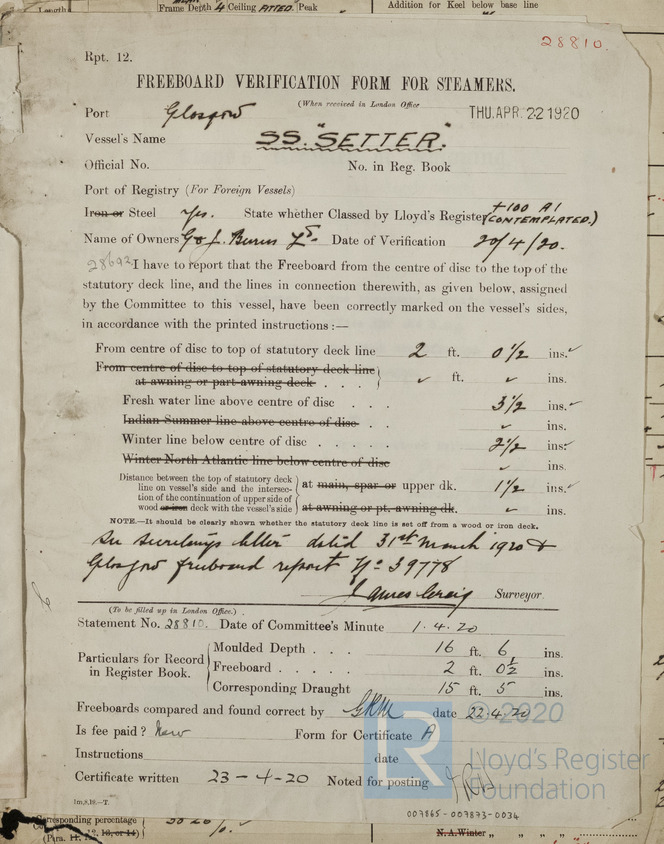 Length
Frame Depth 4 Ceiling FITTED Peak
Addition for Keel below base line
28810.
Rpt. 12.
FREEBOARD VERIFICATION FORM FOR STEAMERS.
(When received in London Office
Port Glasgow THU. APR. 22 1920
Vessel's Name SS. "SETTER."
Official No. No. in Reg. Book
Port of Registry (For Foreign Vessels)
Iron or Steel Yes. State whether Classed by Lloyd's Register +100 A1 (CONTEMPLATED.)
Name of Owners G & J. Burns Ld. Date of Verification 20/4/20.
28692 I have to report that the Freeboard from the centre of disc to the top of the
statutory deck line, and the lines in connection therewith, as given below, assigned
by the Committee to this vessel, have been correctly marked on the vessel's sides,
in accordance with the printed instructions :—
From centre of disc to top of statutory deck line 2 ft. 0 1/2 ins. ✓
From centre of disc to top of statutory deck line
at awning or part awning deck . . . ✓ ft. ✓ ins.
Fresh water line above centre of disc . . . 3 1/2 ins. ✓
Indian Summer line above centre of disc . . ✓ ins.
Winter line below centre of disc . . . . . 2 1/2 ins. ✓
Winter North Atlantic line below centre of disc ✓ ins.
Distance between the top of statutory deck
line on vessel's side and the intersec-
tion of the continuation of upper side of
wood or iron deck with the vessel's side
at main, spar or upper dk. 1 1/2 ins. ✓
at awning or pt. awning dk. ✓ ins.
NOTE.—It should be clearly shown whether the statutory deck line is set off from a wood or iron deck.
See Secretary's letter dated 31st March 1920 &
Glasgow freeboard report No 39778
James Craig Surveyor.
(To be filled up in London Office.)
Statement No. 28810. Date of Committee's Minute 1.4.20
Particulars for Record
in Register Book.
Moulded Depth . . . 16 ft. 6 ins.
Freeboard . . . . . 2 ft. 0 1/2 ins.
Corresponding Draught 15 ft. 5 ins.
Freeboards compared and found correct by GRM date 22.4.20
Is fee paid? Form for Certificate A
Instructions date
Certificate written 23-4-20 Noted for posting
1m,8,19.—T.
007865-007873-0034
© 2020
Lloyd's Register
Foundation
Corresponding percentage
(Para. 11, 12, 13, or 14)
N.A. Winter